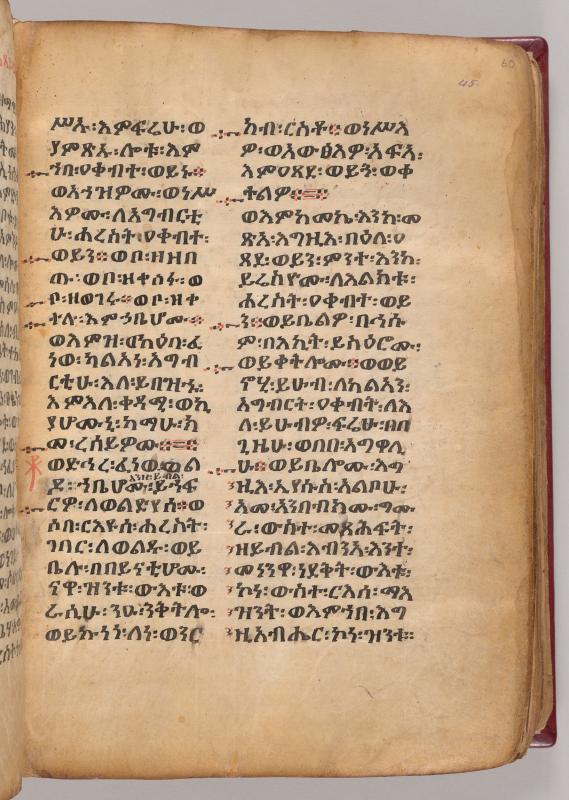 ሥኡ፡እምፍሬሁ፡ወ
ያምጽኡ፡ሎቱ፡እም
ኀበ፡ዐቀብተ፡ወይኑ።
ወአኀዝዎሙ፡ወነሥ
እዎሙ፡ለአግብርቲ
ሁ፡ሐረስት፡ዐቀብተ፡
ወይን።ወቦ፡ዘዘበ
ጡ፡ወቦ፡ዘቀሰፉ፡ወ
ቦ፡ዘወገሩ።ወቦ፡ዘቀ
ተሉ፡እምኔሆሙ።
ወእምዝ፡ዐዕበ፡ፈ
ነወ፡ካልአነ፡አግብ
ርቲሁ፡እለ፡ይበዝኁ፡
እምእለ፡ቀዳሚ፡ወኪ
ያሆሙኒ፡ከማሁ፡ከ
መ፡ረሰይዎሙ።
ወድኅረ፡ፈነወ፡ወል
ዶ፡ኀቤሆሙ፡
እንዘ፡ይብል፡
ይኀፍ
ርዎ፡ለወልድየሰ።ወ
ሶበ፡ርእዩሰ፡ሐረስት፡
ገባር፡ለወልዱ፡ወይ
ቤሉ፡በበይናቲሆሙ፡
ናዋ፡ዝንቱ፡ውእቱ፡ወ
ራሲሁ፡ንዑ፡ንቅትሎ፡
ወይኩነነ፡ለነ፡ወንር
ከብ፡ርስቶ።ወነሥእ
ዎ፡ወአውፅእዎ፡አፍአ፡
እምዐጸደ፡ወይን፡ወቀ
ተልዎ።
ወእምከመኬ፡እንከ፡መ
ጽአ፡እግዚአ፡በዐለ፡ዐ
ጸደ፡ወይን፡ምንተ፡እንከ፡
ይሬስዮሙ፡ለእልክቱ፡
ሐረስት፡ዐቀብተ፡ወይ
ን።ወይቤልዎ፡በኅሱ
ም፡በእኪት፡ይስዕሮሙ፡
ወይቀትሎሙ።ወወይ
ኖሂ፡ይሁብ፡ለካልኣን፡
አግብርት፡ዐቀብት፡ለእ
ለ፡ይሁብዎ፡ፍሬሁ፡በበ
ጊዜሁ፡ወበበ፡አግዋሊ
ሁ።ወይቤሎሙ፡እግ
ዚእ፡ኢየሱስ፡አልቦሁ፡
አመ፡አንበብክሙ፡ግሙ
ራ፡ውስተ፡መጽሐፍት፡
ዘይብል፡እብንአ፡እንተ፡
መነንዋ፡ነደቅት፡ውእቱ፡
ኮነ፡ውስተ፡ርእሰ፡ማእ
ዝንት፡ወእምኀበ፡እግ
ዚአብሔር፡ኮነ፡ዝንቱ።
45.
60